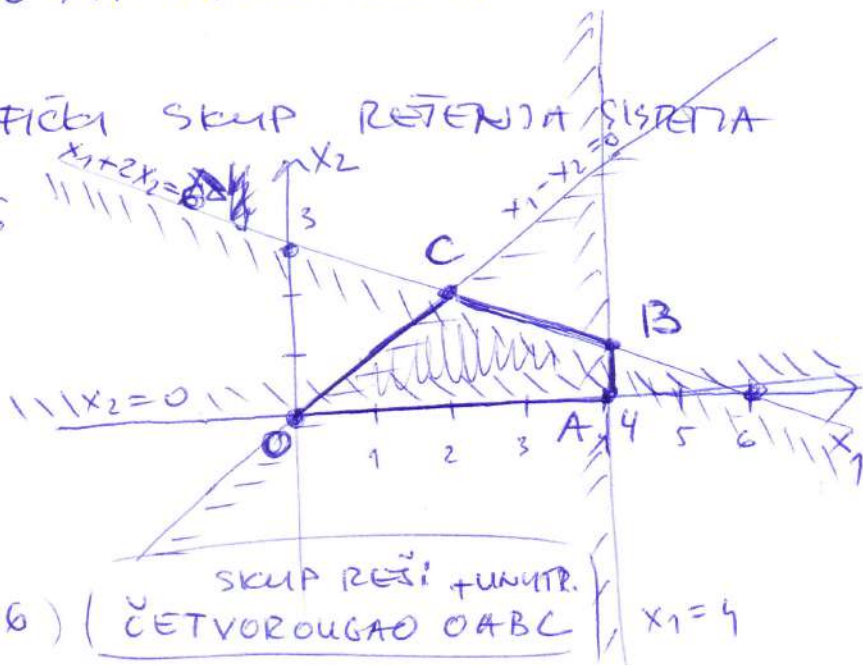 SKUP REŠENJA SISTEMA
x₁+2x₂=6
x₂
x₁-x₂=0
3
C
B
x₂=0
O
1 2 3 A 4 5 6 x₁
SKUP REŠ. +UNUTR.
6) ČETVOROUGAO OABC x₁=4